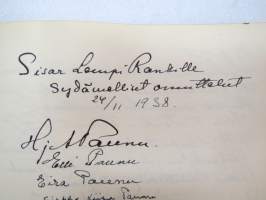 Sisar Lempi Rankille
Sydämelliset onnittelut
24/11 1938.
Hj. A. Paunu
Elli Paunu
Eira Paunu
Paunu